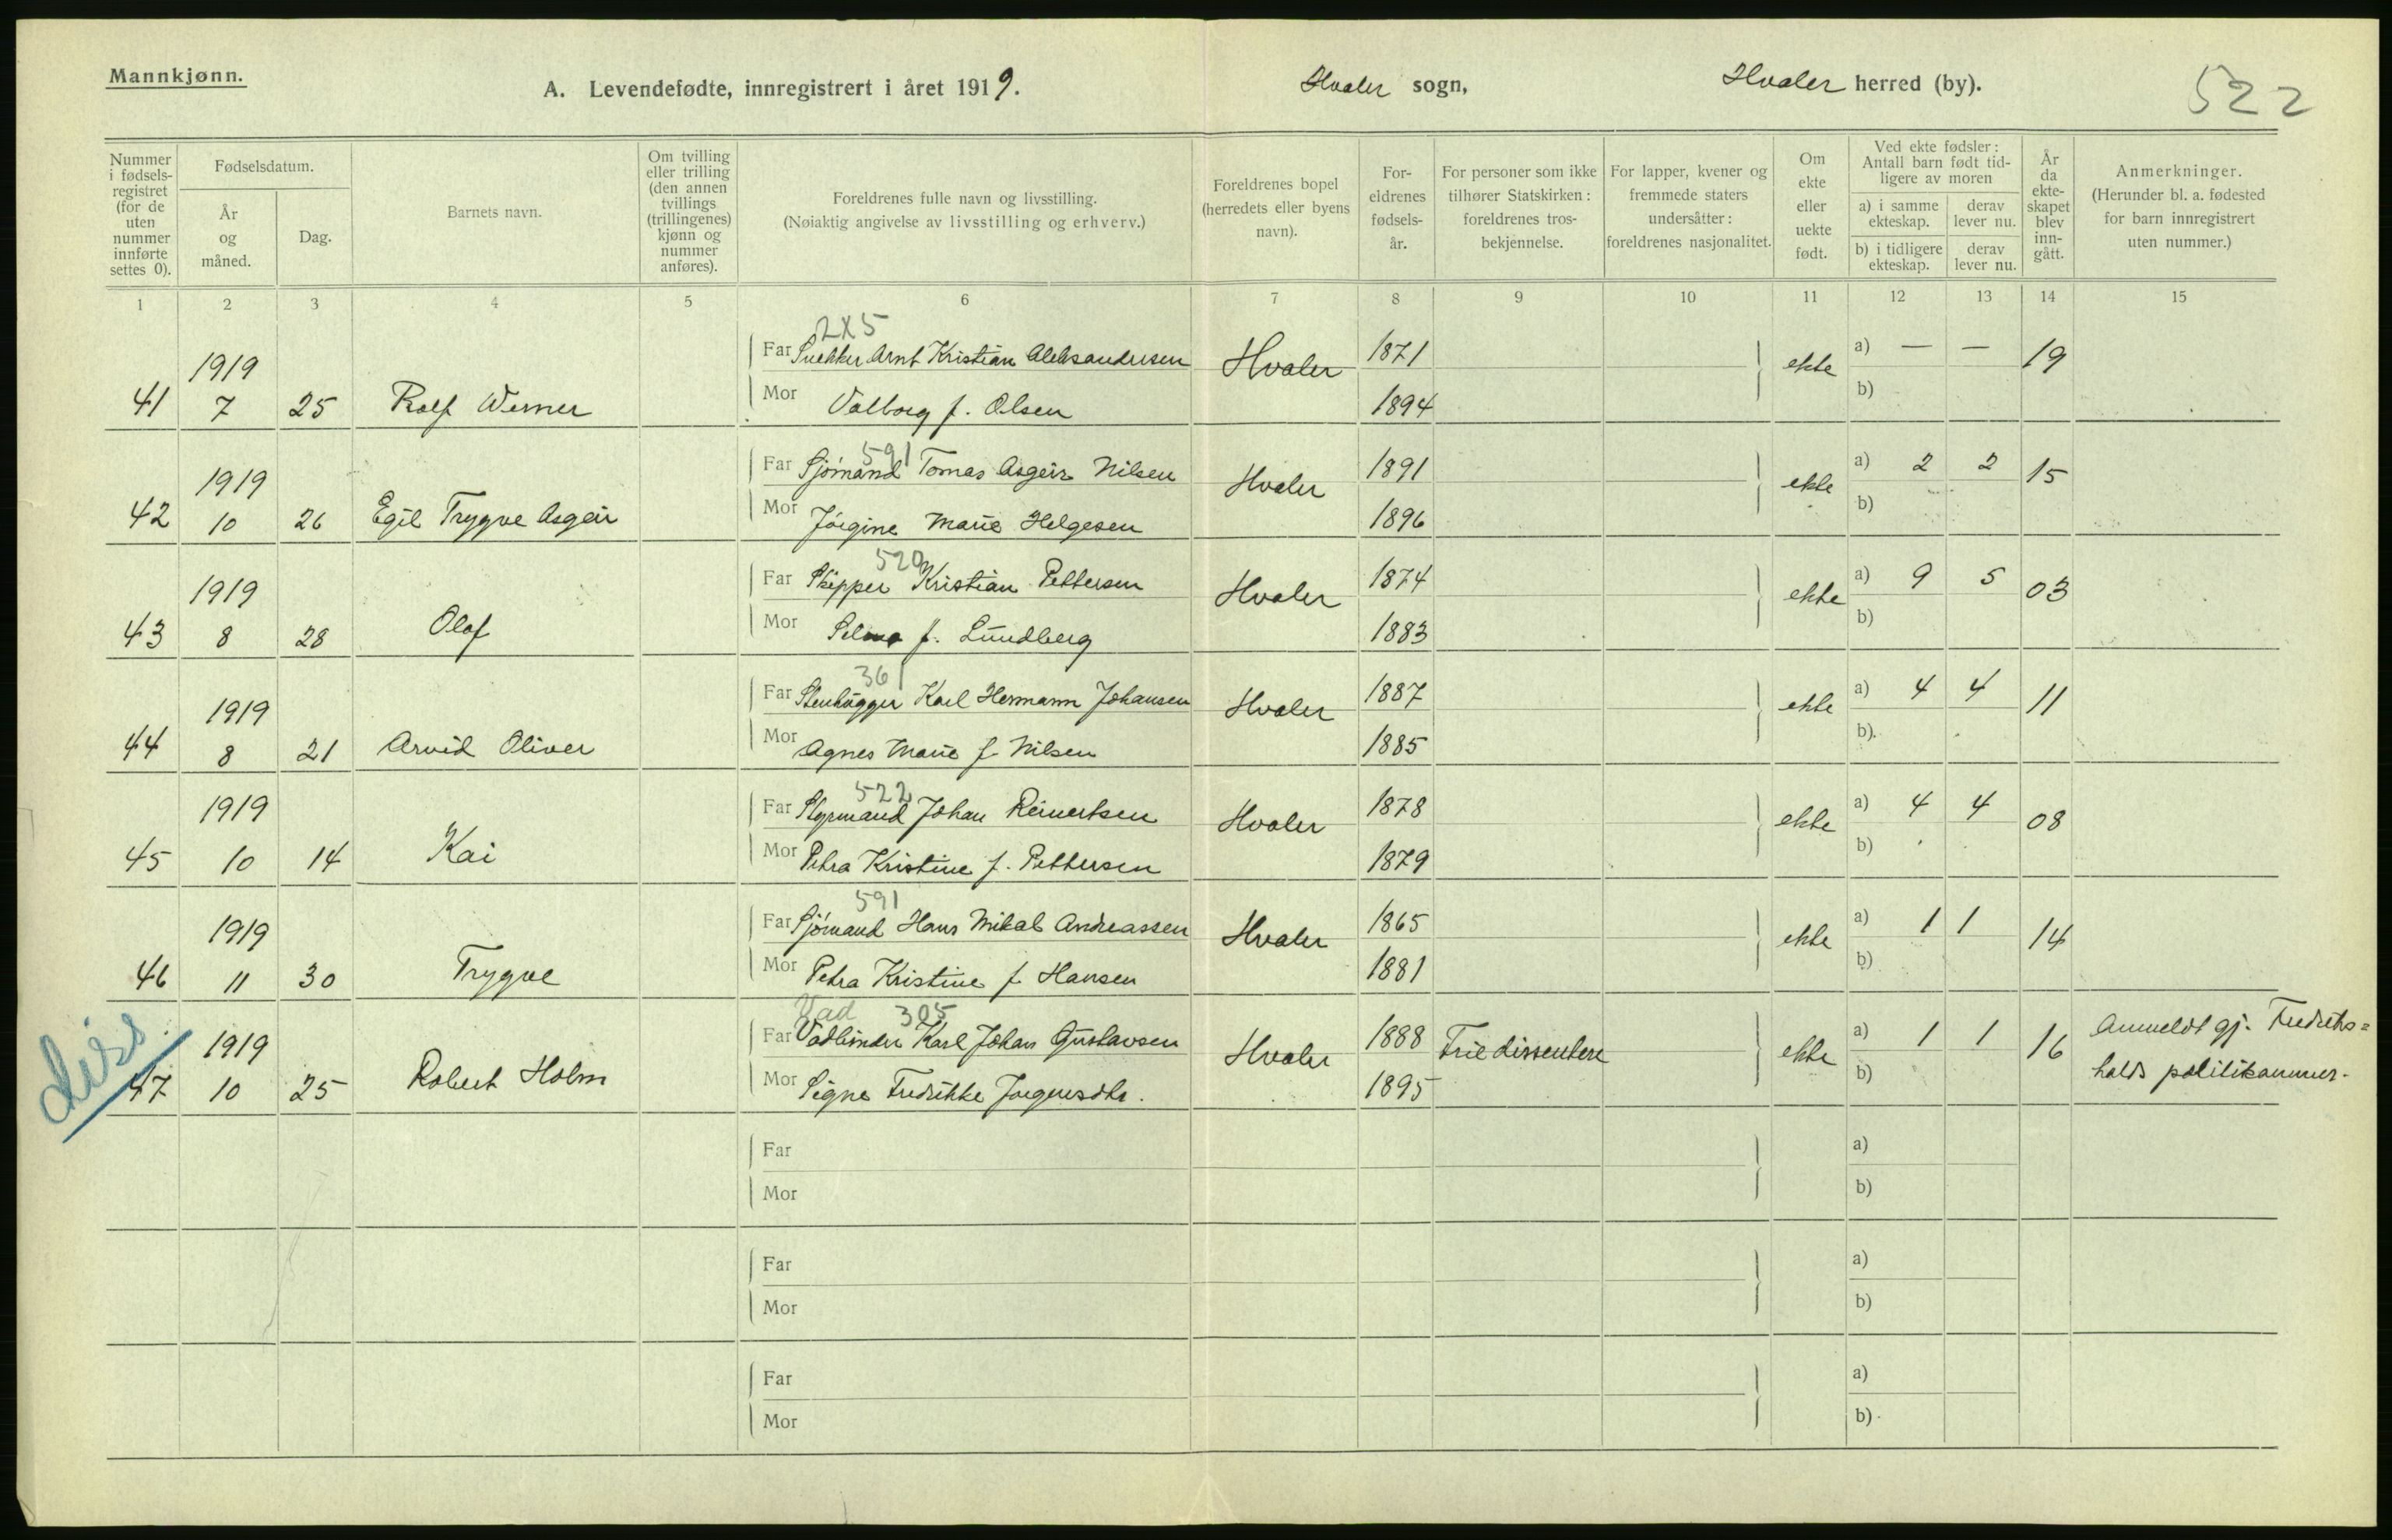 Mannkjønn.
A. Levendefødte, innregistrert i året 1919.
Hvaler sogn,
Hvaler herred (by).
522
Nummer i fødselsregistret (for de uten nummer innførte settes 0).
Fødselsdatum.
År og måned.
Dag.
Barnets navn.
Om tvilling eller trilling (den annen tvillings (trillingenes) kjønn og nummer anføres).
Foreldrenes fulle navn og livsstilling.
(Nøiaktig angivelse av livsstilling og erhverv.)
Foreldrenes bopel (herredets eller byens navn).
Foreldrenes fødselsår.
For personer som ikke tilhører Statskirken: foreldrenes trosbekjennelse.
For lapper, kvener og fremmede staters undersåtter: foreldrenes nasjonalitet.
Om ekte eller uekte født.
Ved ekte fødsler: Antall barn født tidligere av moren
a) i samme ekteskap.
derav lever nu.
b) i tidligere ekteskap.
derav lever nu.
År da ekteskapet blev inngått.
Anmerkninger.
(Herunder bl. a. fødested for barn innregistrert uten nummer.)
1 2 3 4 5 6 7 8 9 10 11 12 13 14 15
2X5
Far Snekker Arnt Kristian Aleksandersen 1871 a) — —
41 1919 7 25 Rolf Werner Hvaler ekte 19
Mor Valborg f. Olsen 1894 b)
591
Far Sjømand Tomas Asgeir Nilsen 1891 a) 2 2
42 1919 10 26 Egil Trygve Asgeir Hvaler ekte 15
Mor Jørgine Marie Helgesen 1896 b)
520
Far Skipper Kristian Pettersen 1874 a) 9 5
43 1919 8 28 Olaf Hvaler ekte 03
Mor Selma f. Lundberg 1883 b)
361
Far Stenhugger Karl Hermann Johansen 1887 a) 4 4
44 1919 8 21 Arvid Oliver Hvaler ekte 11
Mor Agnes Marie f. Nilsen 1885 b)
522
Far Styrmand Johan Reinertsen 1878 a) 4 4
45 1919 10 14 Kai Hvaler ekte 08
Mor Petra Kristine f. Pettersen 1879 b)
591
Far Sjømand Hans Mikal Andreassen 1865 a) 1 1
46 1919 11 30 Trygve Hvaler ekte 14
Mor Petra Kristine f. Hansen 1881 b)
Vad 305
Diss.
Far Vadbinder Karl Johan Gustavsen 1888 Frie dissentere a) 1 1 Anmeldt gj. Fredriks=
47 1919 10 25 Robert Holm Hvaler ekte 16
Mor Signe Fredrikke Jørgensdtr. 1895 b) halds politikammer.
Far a)
Mor b)
Far a)
Mor b)
Far a)
Mor b)